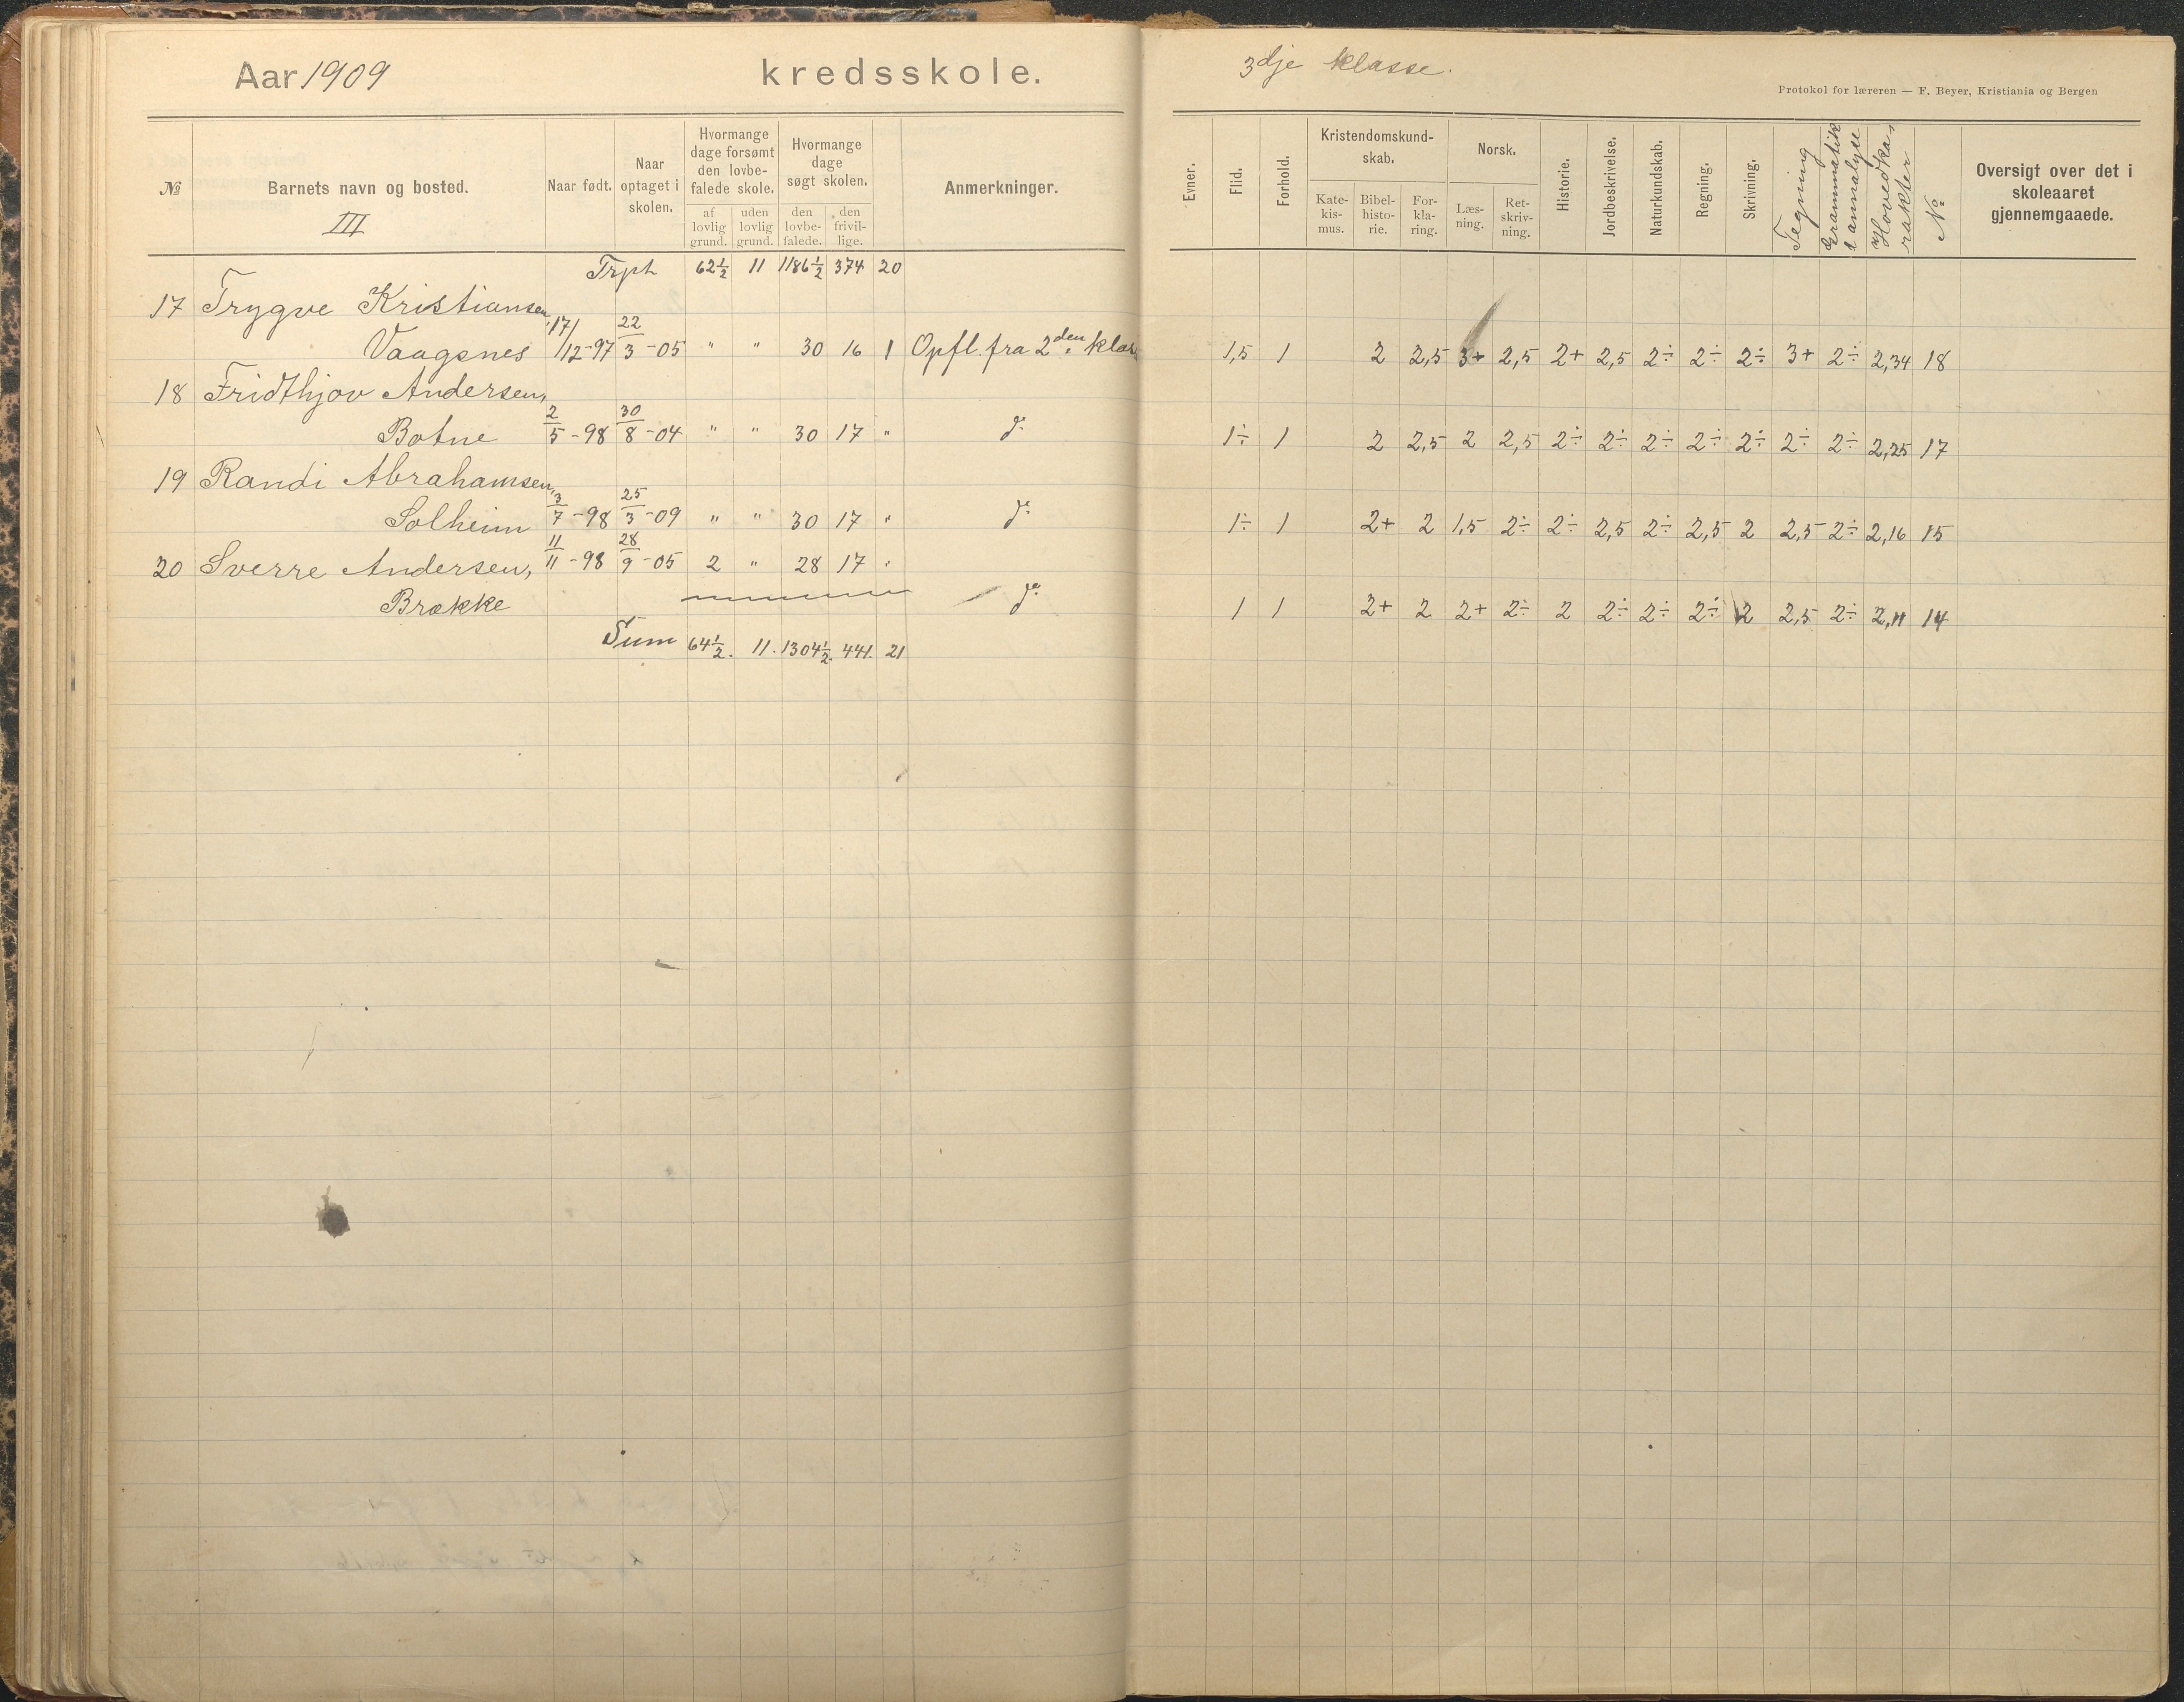 Aar 1909 kredsskole.
№ Barnets navn og bosted. III Naar født. Naar optaget i skolen. Hvormange dage forsømt den lovbefalede skole. af lovlig grund. uden lovlig grund. Hvormange dage søgt skolen. den lovbefalede. den frivillige. Anmerkninger.
62½ 11 1186½ 374 20
17 Trygve Kristiansen,
Vaagsnes 17/12-97 22/3-05 " " 30 16 1 Opfl. fra 2den klas
18 Fridthjov Andersen,
Botne 2/5-98 30/8-04 " " 30 17 " do
19 Randi Abrahamsen,
Solheim 3/7-98 25/3-09 " " 30 17 " do
20 Sverre Andersen, 11/11-98 28/9-05 2 " 28 17 "
Brække do
Sum 64½. 11. 1304½. 441. 21
3dje klasse.
Protokol for læreren — F. Beyer, Kristiania og Bergen
Evner. Flid. Forhold. Kristendomskundskab. Katekismus. Bibelhistorie. Forklaring. Norsk. Læsning. Retskrivning. Historie. Jordbeskrivelse. Naturkundskab. Regning. Skrivning. Tegning Grammatik & annalyse Hovedkarakter № Oversigt over det i skoleaaret gjennemgaaede.
1,5 1 2 2,5 3+ 2,5 2+ 2,5 2÷ 2÷ 2÷ 3+ 2÷ 2,34 18
1÷ 1 2 2,5 2 2,5 2÷ 2÷ 2÷ 2÷ 2÷ 2÷ 2÷ 2,25 17
1÷ 1 2+ 2 1,5 2÷ 2÷ 2,5 2÷ 2,5 2 2,5 2÷ 2,16 15
1 1 2+ 2 2+ 2÷ 2 2÷ 2÷ 2÷ 2 2,5 2÷ 2,11 14